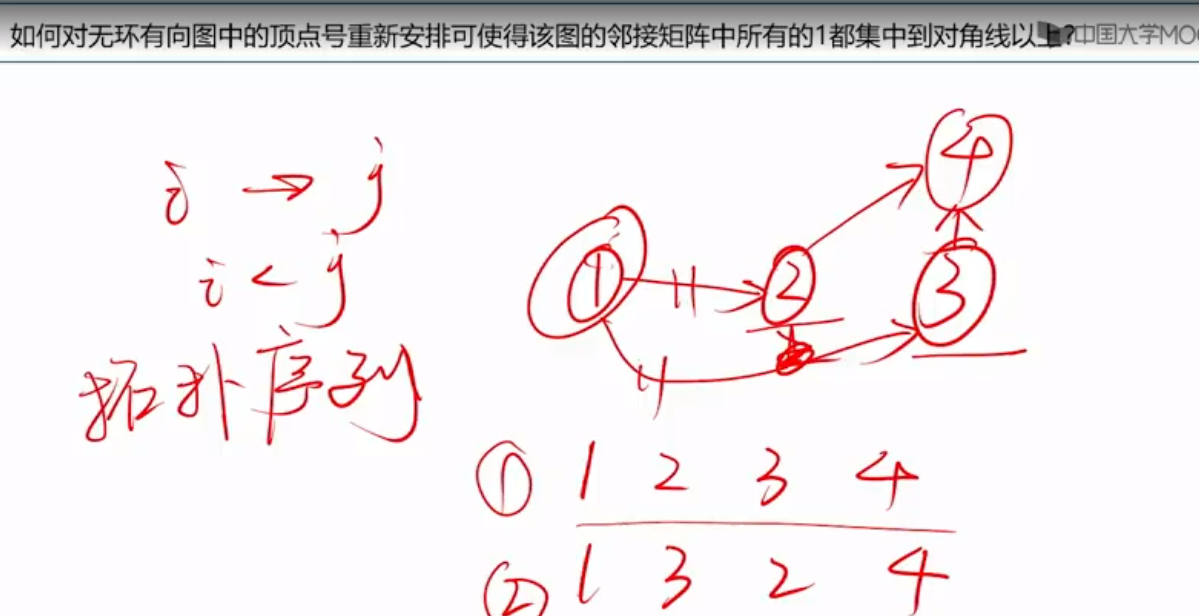 如何对无环有向图中的顶点号重新安排可使得该图的邻接矩阵中所有的1都集中到对角线以上?
中国大学MO
i → j
i < j
拓扑序列
4
1
2
3
① 1 2 3 4
② 1 3 2 4